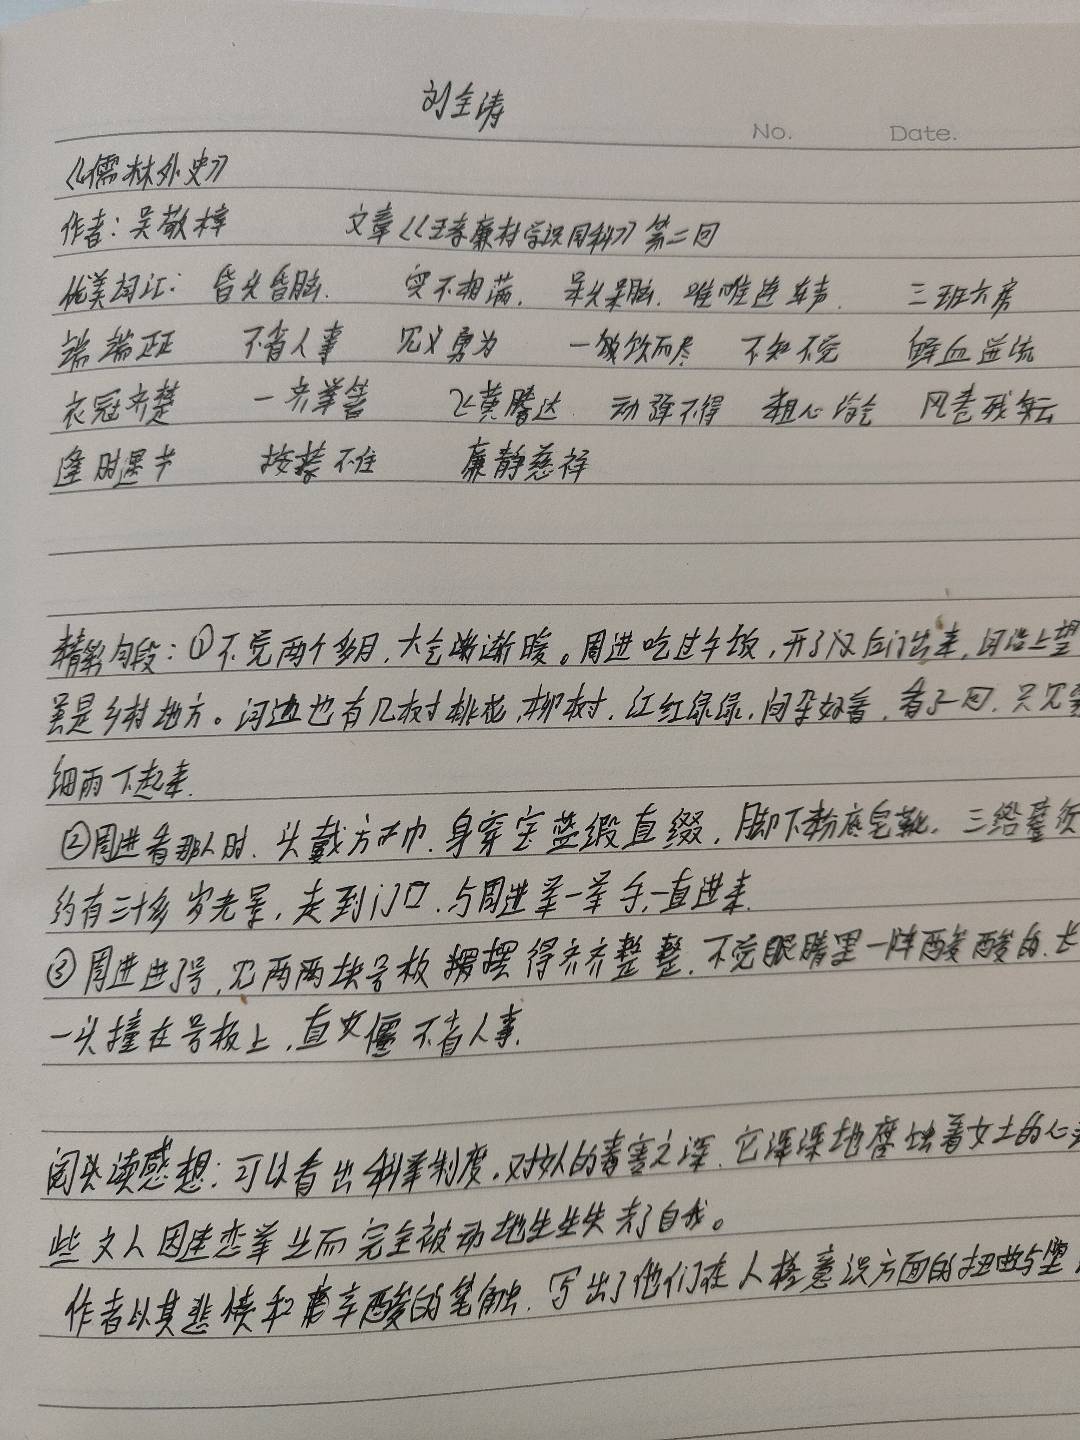 刘全涛
No. Date.
《儒林外史》
作者：吴敬梓 文章《王孝廉村学识同科》第二回
优美词汇：昏头昏脑. 实不相满. 呆头呆脑. 唯唯连声. 三班六房
端端正正 不省人事 见义勇为 一饮而尽 不知不觉 鲜血逆流
衣冠齐楚 一齐举箸 飞黄腾达 动弹不得 粗心 风卷残云
逢时遇节 按捺不住 廉静慈祥
精彩句段：①不觉两个多月，天气渐渐暖。周进吃过午饭，开了后门出来，河沿上望
虽是乡村地方。河边也有几树桃花，柳树，红红绿绿，间杂好看，看了一回，只见蒙
细雨下起来.
②周进看那人时，头戴方巾，身穿宝蓝缎直缀，脚下粉底皂靴，三绺髭须
约有三十多岁光景，走到门口，与周进举一举手，一直进来.
③周进进了号，见两块号板摆得齐齐整整，不觉眼睛里一阵酸酸的，长
一头撞在号板上，直僵不省人事.
阅读感想：可以看出科举制度，对人的毒害之深，它深深地腐蚀着文士的心
些文人因迷恋举业而完全被动地失去了自我。
作者以其悲愤和辛酸的笔触，写出了他们在人格意识方面的扭曲与